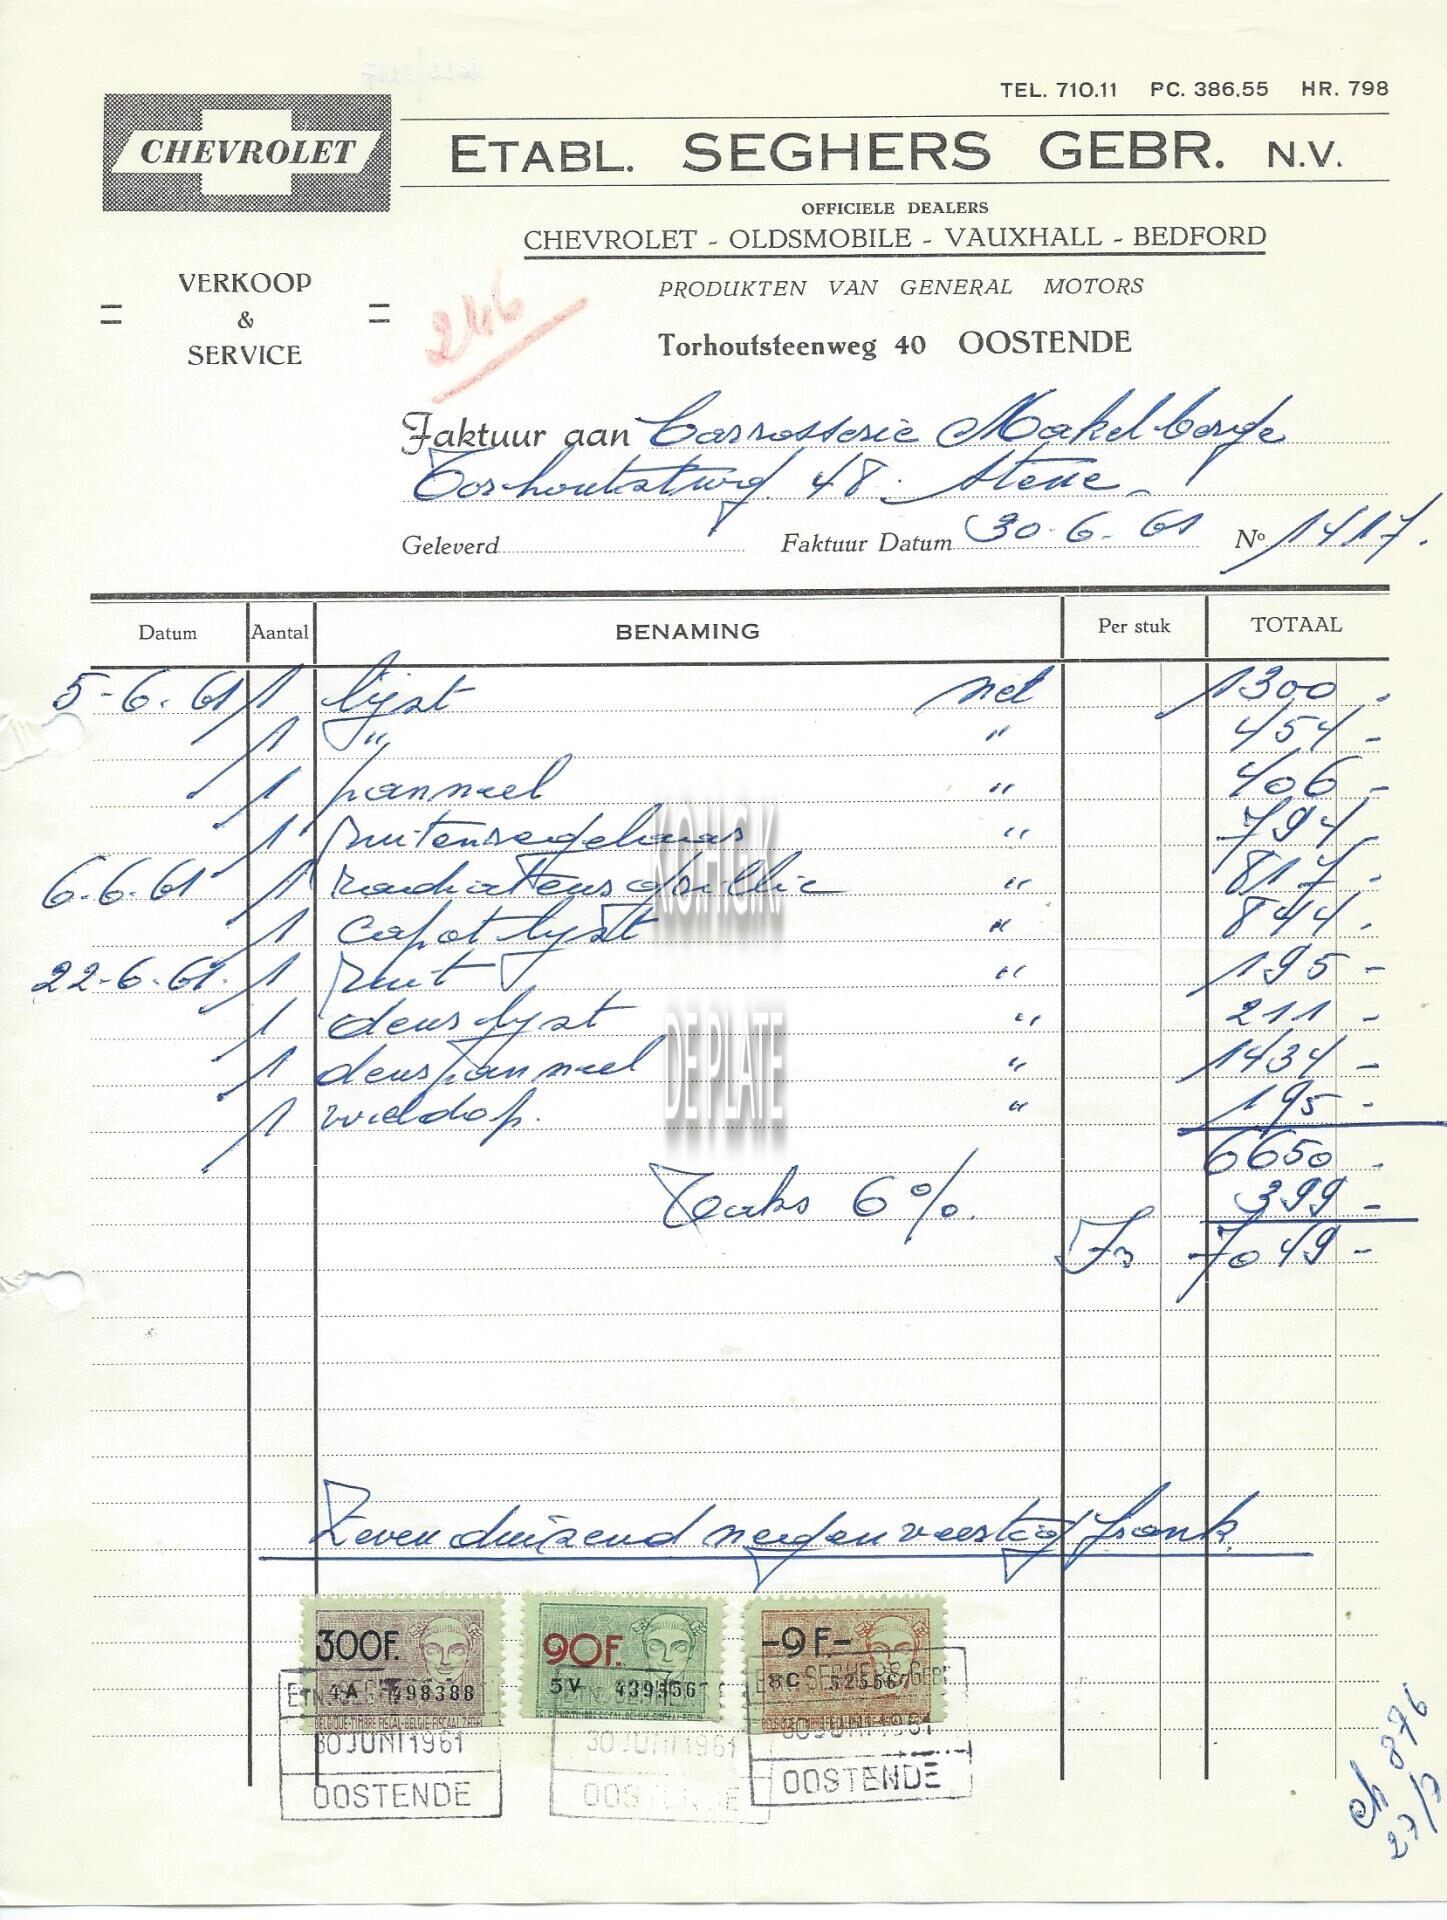 TEL. 710.11 PC. 386.55 HR. 798
CHEVROLET
ETABL. SEGHERS GEBR. N.V.
OFFICIELE DEALERS
CHEVROLET - OLDSMOBILE - VAUXHALL - BEDFORD
PRODUKTEN VAN GENERAL MOTORS
Torhoutsteenweg 40 OOSTENDE
= VERKOOP & SERVICE =
246
Faktuur aan Carrosserie Makelberge
Torhoutstwg 48. Stene
Geleverd Faktuur Datum 30-6-61 No 1417.
Datum Aantal BENAMING Per stuk TOTAAL
5-6-61 1 lijst net 1300.
1 " " 454-
1 panneel " 406-
1 ruitenregelaar " 794-
6-6-61 1 " 817.
1 capot lijst " 844.
22-6-61. 1 ruit " 195-
1 deurlijst " 211-
1 deurpanneel " 1434-
1 wieldop. " 195-
6650.
Taks 6%. 399-
Fr 7049-
KOHGK
DE PLATE
Zevenduizend negenveertig frank.
300F. 90F. -9F-
4A 498388 5V 439556
BELGIQUE-TIMBRE FISCAL-BELGIE-FISCALE ZEGEL
30 JUNI 1961 30 JUNI 1961 30 JUNI 1961
OOSTENDE OOSTENDE OOSTENDE
ch 876
27/7